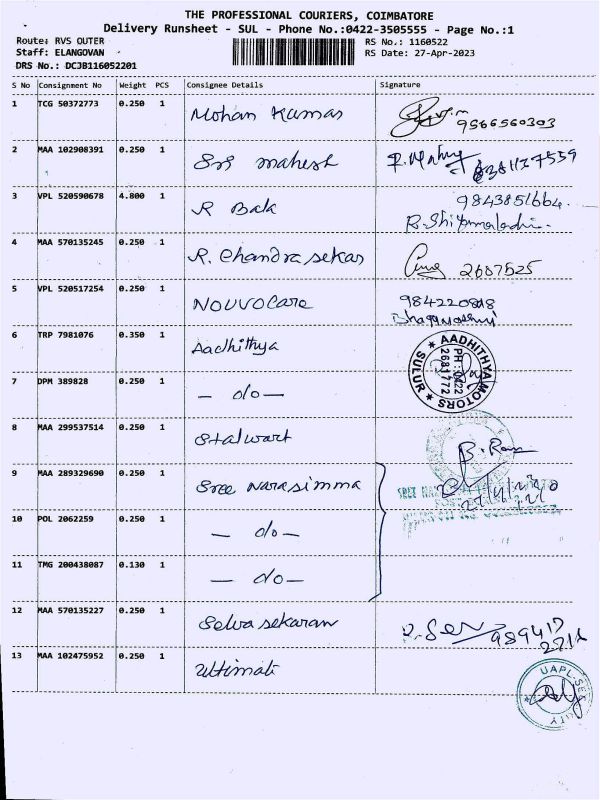 THE PROFESSIONAL COURIERS, COIMBATORE
Delivery Runsheet - SUL - Phone No.:0422-3505555 - Page No.:1
Route: RVS OUTER RS No.: 1160522
Staff: ELANGOVAN RS Date: 27-Apr-2023
DRS No.: DCJB116052201
S No Consignment No Weight PCS Consignee Details Signature
1 TCG 50372773 0.250 1 Mohan Kumar 9566560303
2 MAA 102908391 0.250 1 Sri mahesh
3 VPL 520590678 4.800 1 R Bala 9843851664.
4 MAA 570135245 0.250 1 R. Chandrasekar 2607525
5 VPL 520517254 0.250 1 NOUVOCare
6 TRP 7981076 0.350 1 Aadhithya
AADHITHYA MOTORS * SULUR *
PH: 0422
2681772
7 DPM 389828 0.250 1 — do —
8 MAA 299537514 0.250 1 Stalwart
9 MAA 289329690 0.250 1 Sree Narasimma
10 POL 2062259 0.250 1 — do —
11 TMG 200438087 0.130 1 — do —
12 MAA 570135227 0.250 1 Selva sekaran
13 MAA 102475952 0.250 1 Ultimate